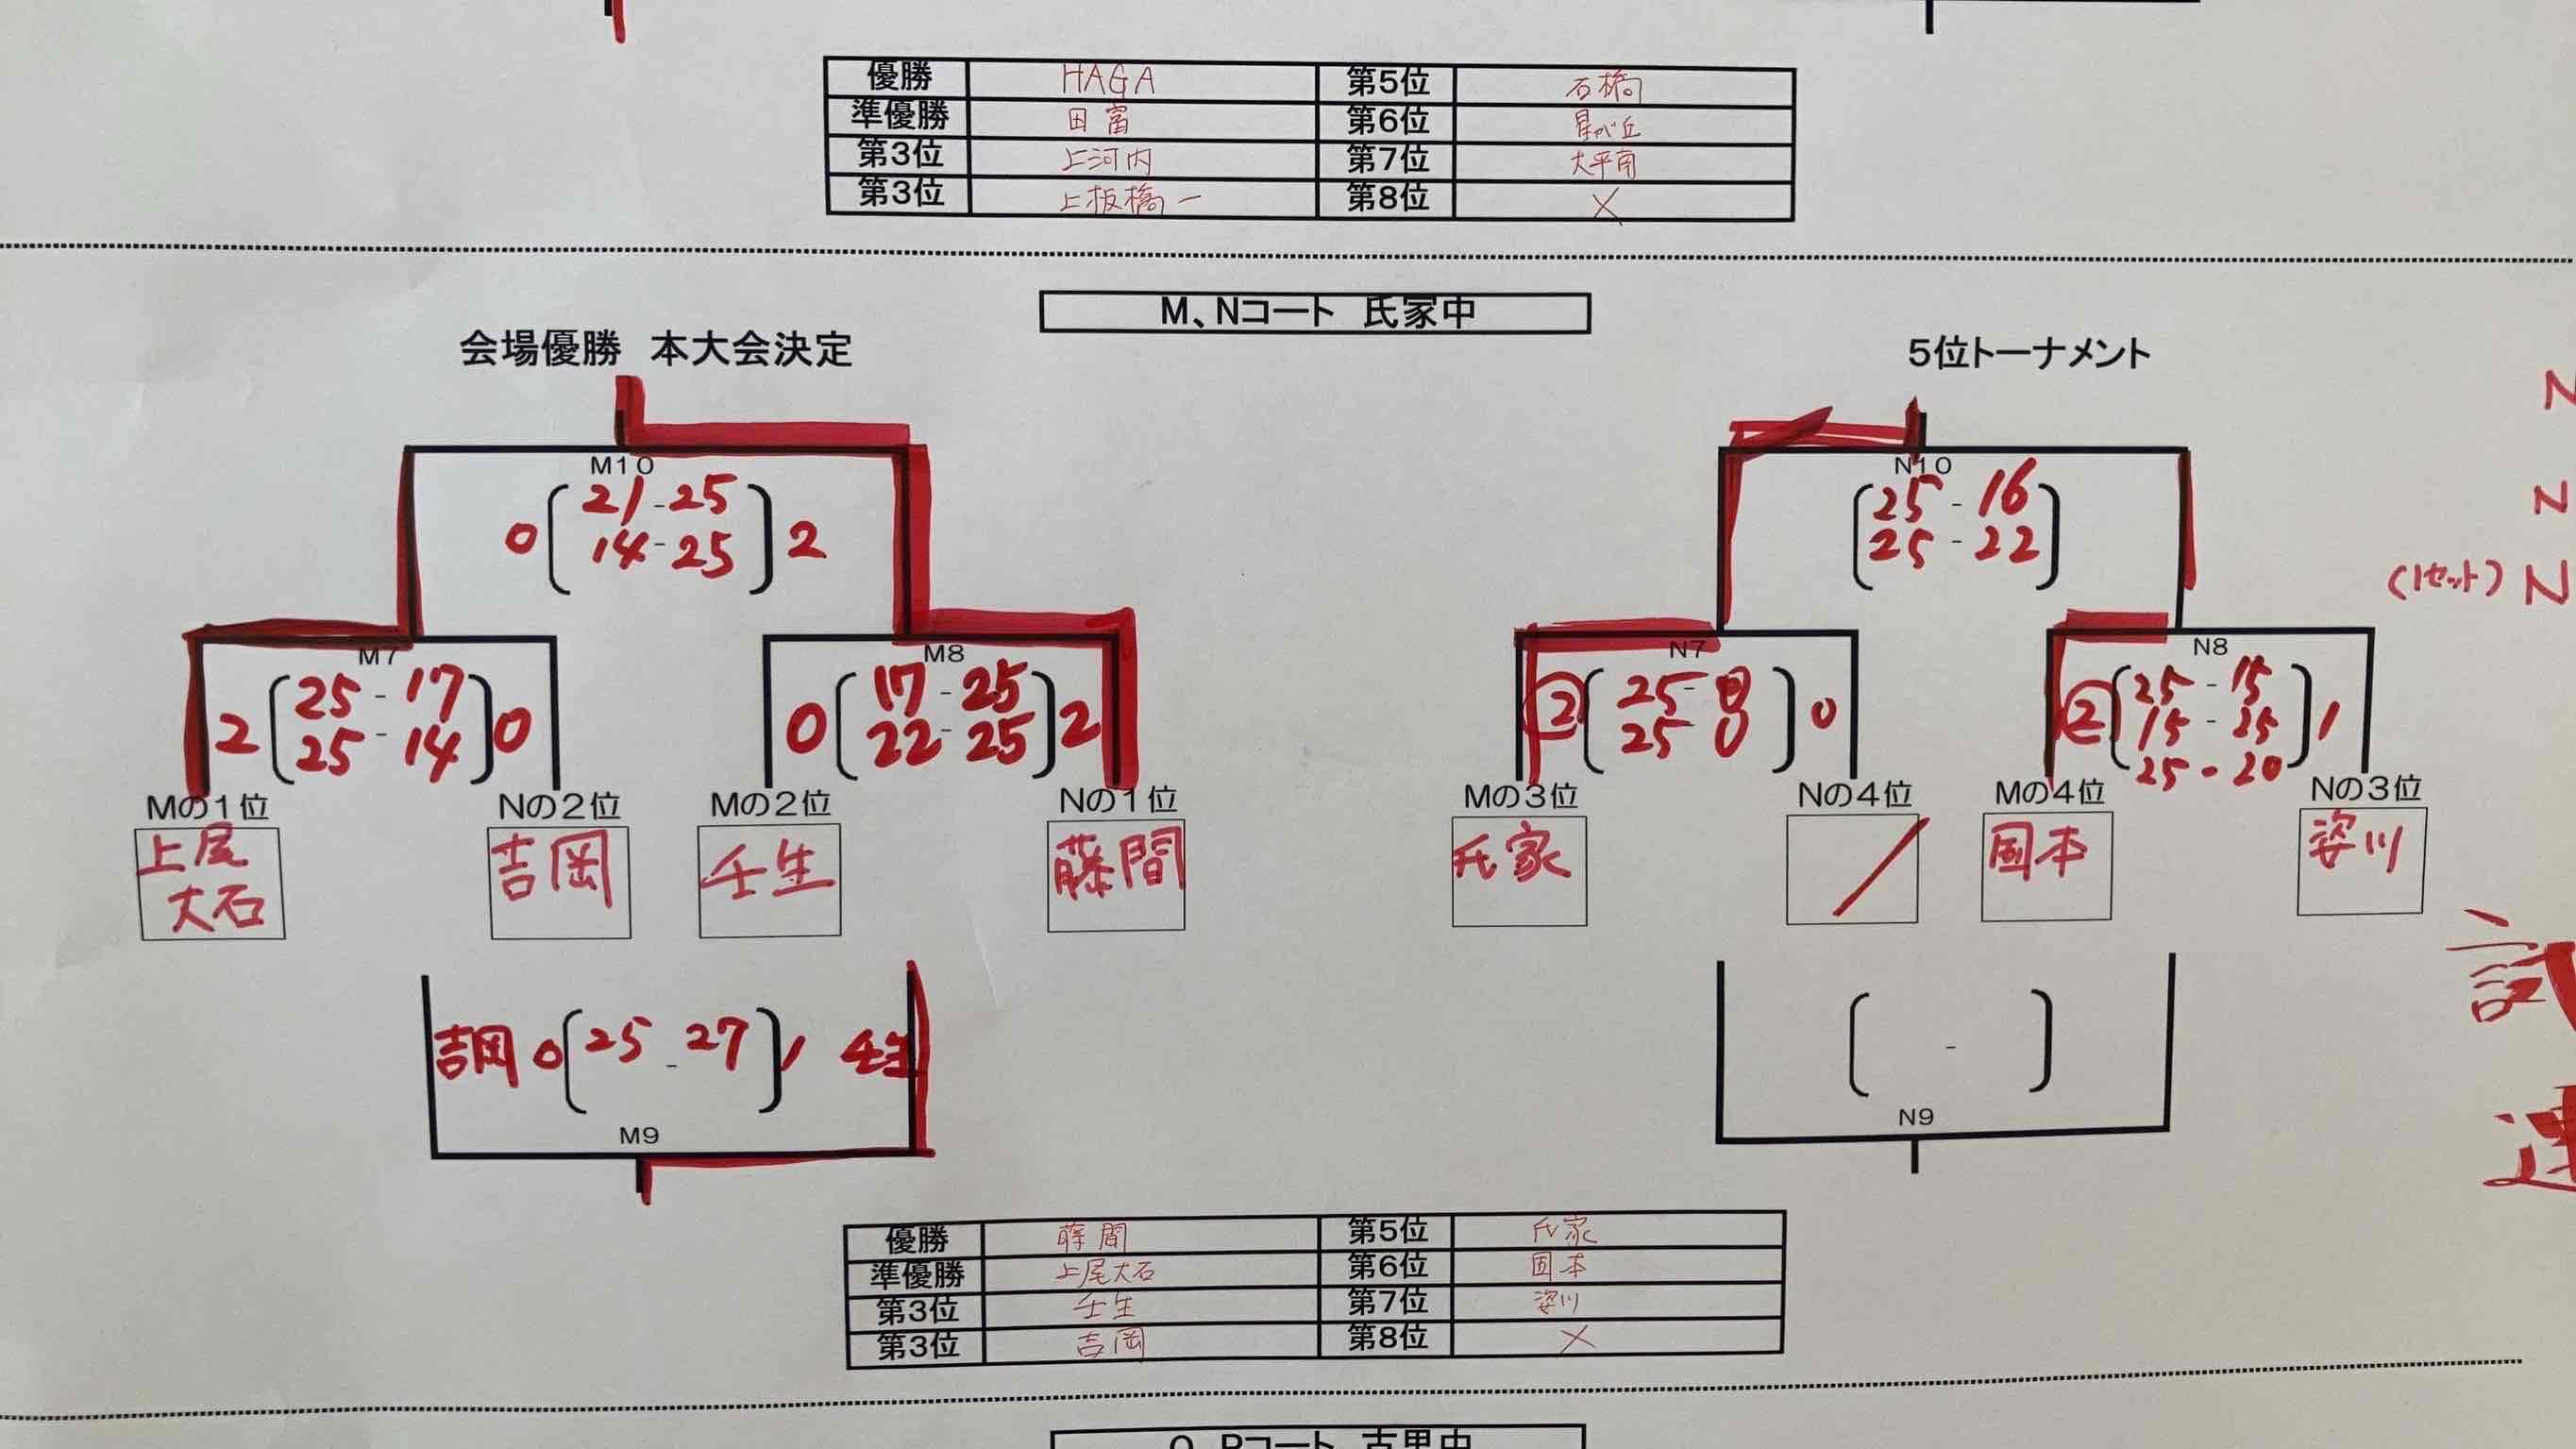 優勝 HAGA 第5位 石橋
準優勝 田富 第6位 星が丘
第3位 上河内 第7位 大平南
第3位 上板橋一 第8位 ×
M、Nコート 氏家中
会場優勝 本大会決定
5位トーナメント
M10
0 (21-25 14-25) 2
N10
(25-16 25-22)
(1セット)
M7
2 (25-17 25-14) 0
M8
0 (17-25 22-25) 2
N7
② (25-0 25-0) 0
N8
② (25-15 15-25 25-20) 1
Mの1位 Nの2位 Mの2位 Nの1位 Mの3位 Nの4位 Mの4位 Nの3位
上尾大石 吉岡 壬生 藤間 氏家 / 国本 姿川
吉岡 0 (25-27) 1 壬生
M9
( - )
N9
優勝 藤間 第5位 氏家
準優勝 上尾大石 第6位 国本
第3位 壬生 第7位 姿川
第3位 吉岡 第8位 ×